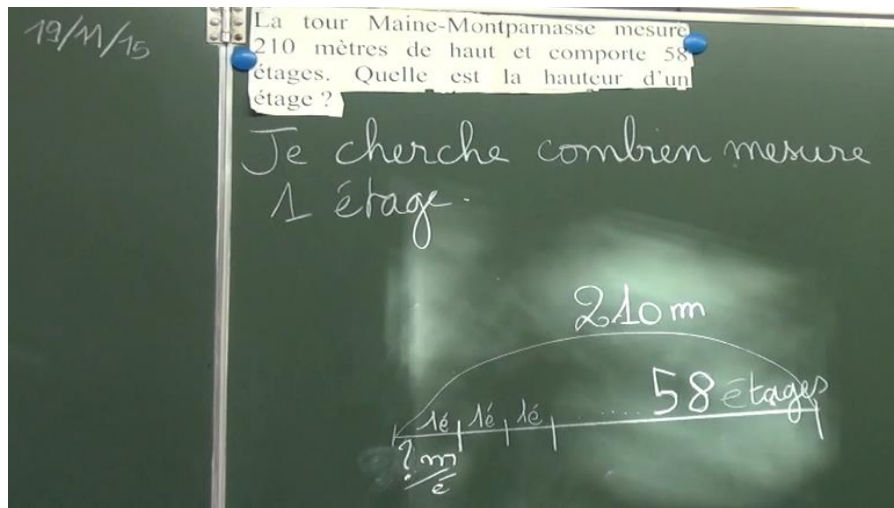 19/11/15
La tour Maine-Montparnasse mesure
210 mètres de haut et comporte 58
étages. Quelle est la hauteur d'un
étage ?
Je cherche combien mesure
1 étage.
210 m
1é 1é 1é ........ 58 étages
? m
é